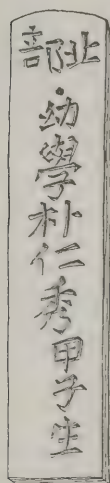 北部
幼學朴仁秀甲子生